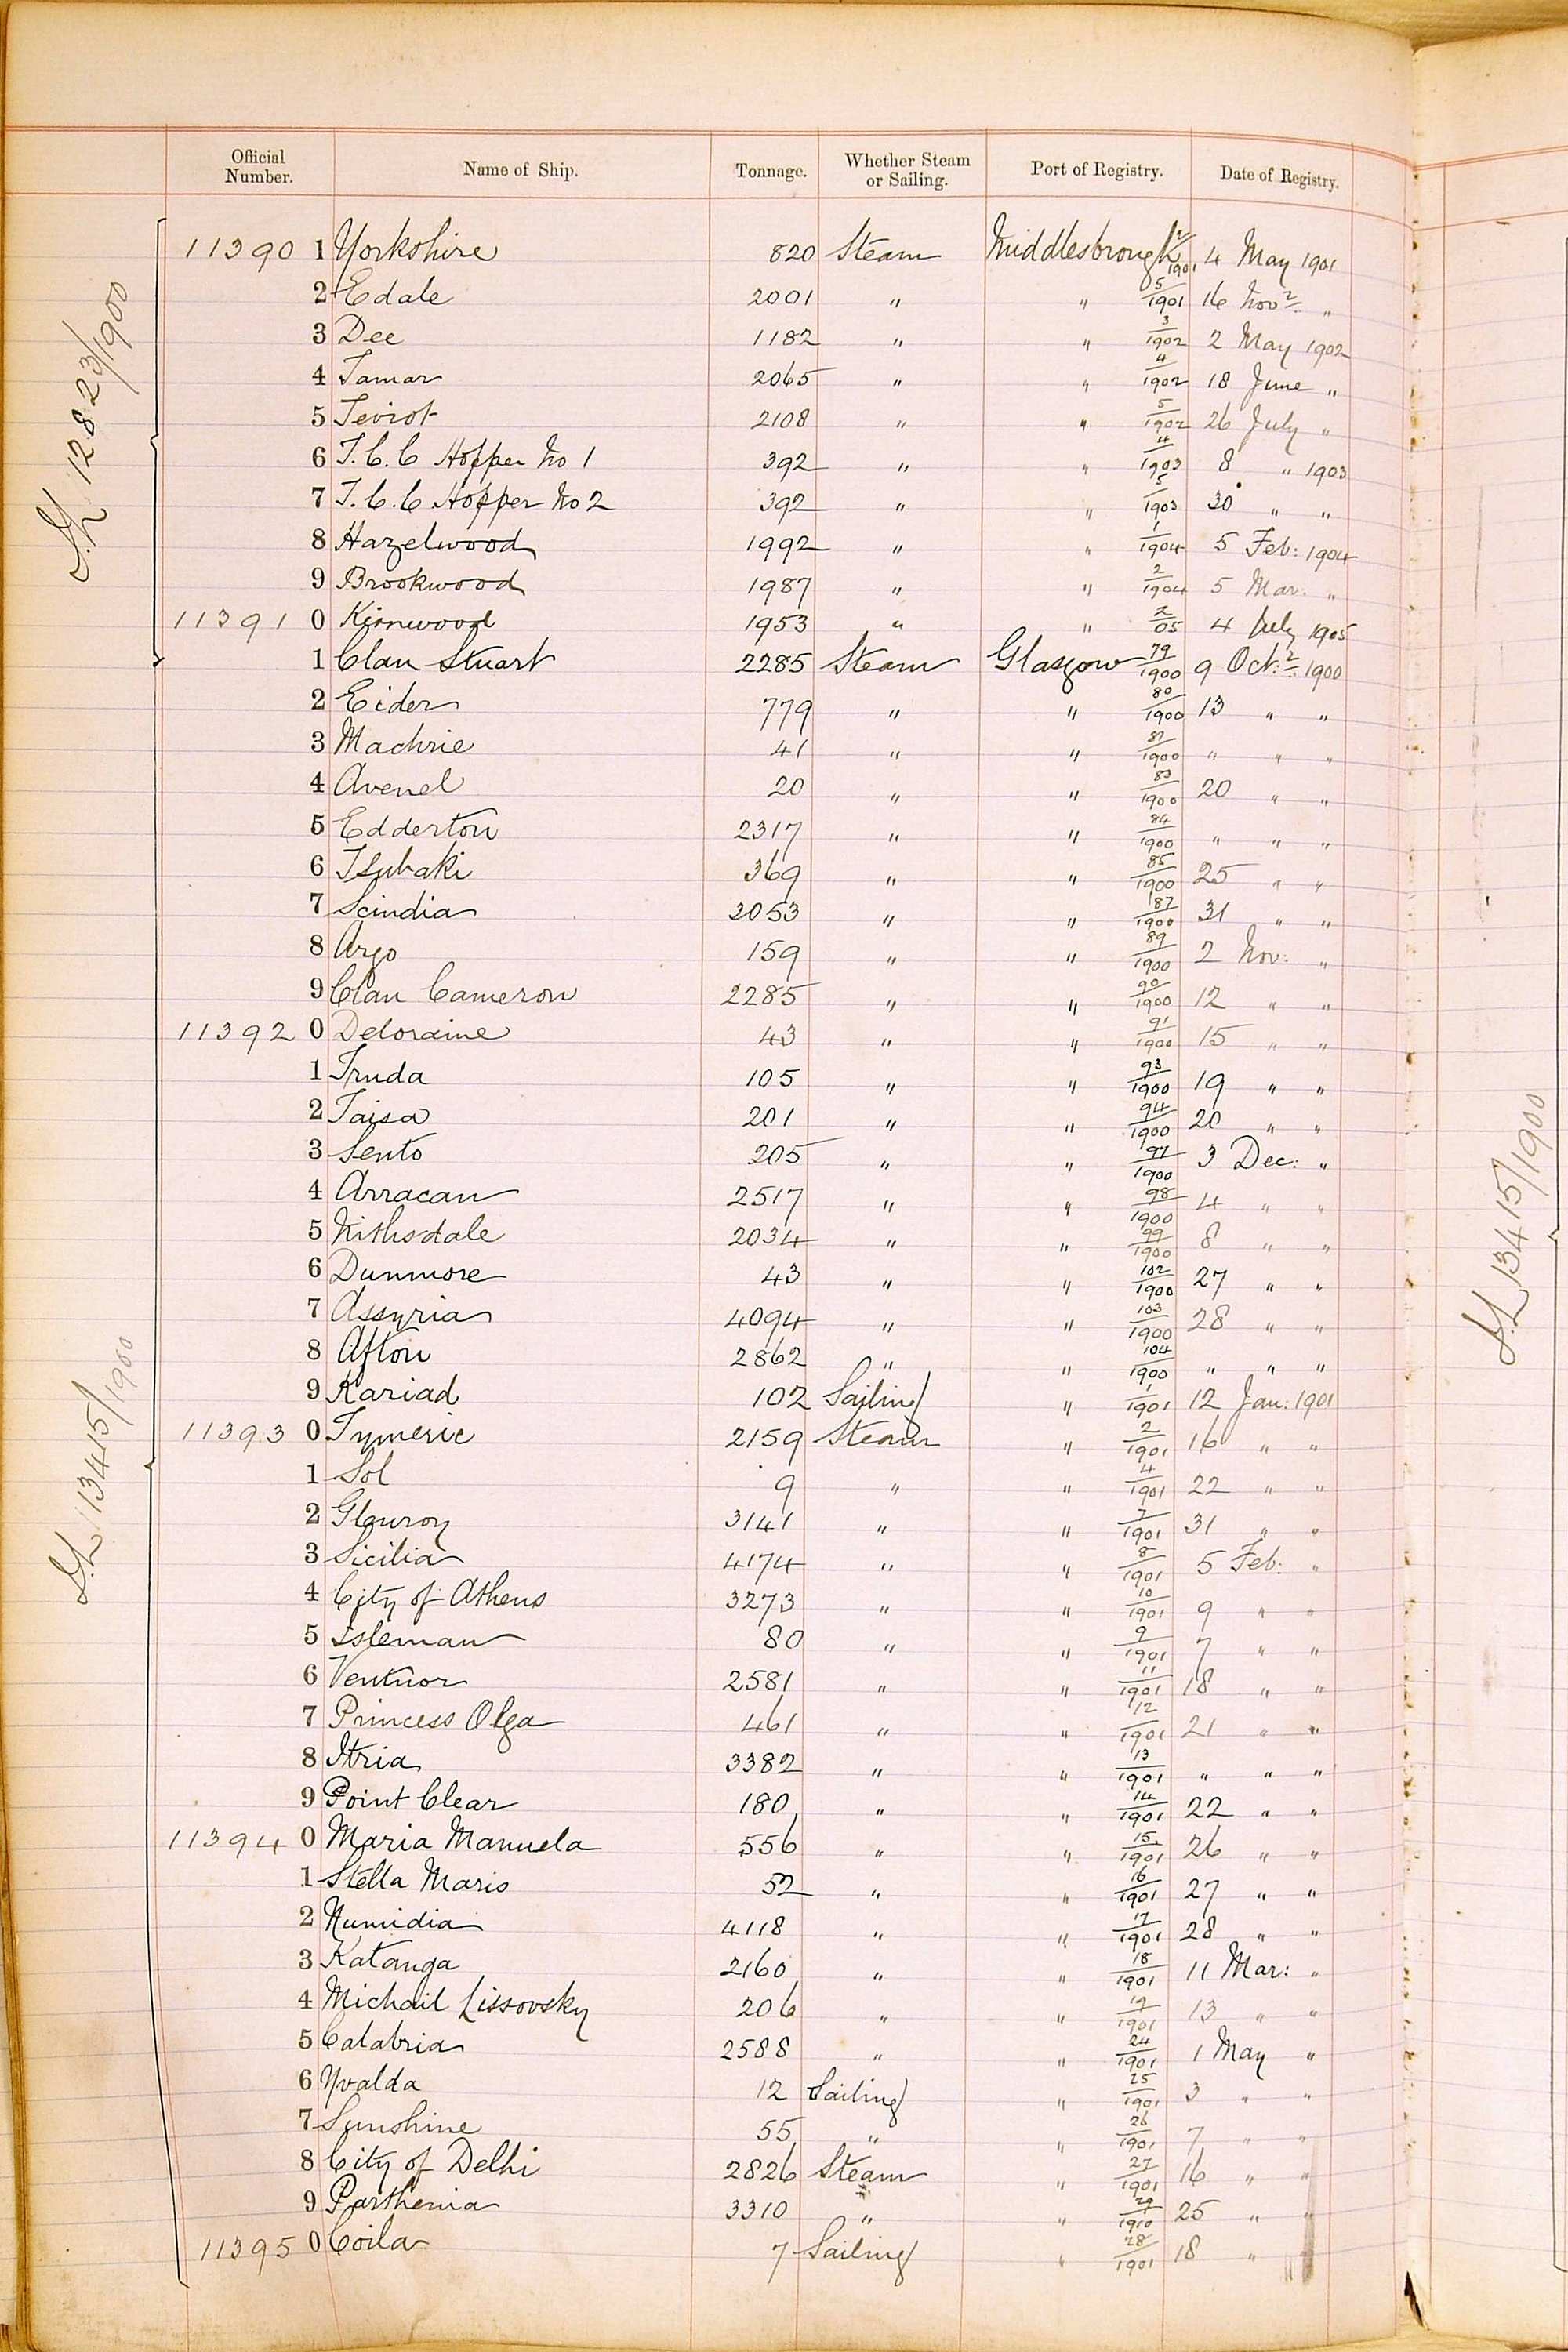 Official Number. Name of Ship. Tonnage. Whether Steam or Sailing. Port of Registry. Date of Registry.
11390 1 Yorkshire 820 Steam Middlesbrough 2/1901 4 May 1901
2 Edale 2001 " " 5/1901 16 Novr. "
3 Dee 1182 " " 3/1902 2 May 1902
4 Tamar 2065 " " 4/1902 18 June "
5 Teviot 2108 " " 5/1902 26 July "
6 T.C.C Hopper No 1 392 " " 4/1903 8 " 1903
7 T.C.C Hopper No 2 392 " " 5/1903 30 " "
8 Hazelwood 1992 " " 1/1904 5 Feb: 1904
9 Brookwood 1987 " " 2/1904 5 Mar: "
11391 0 Kirnwood 1953 " " 2/05 4 July 1905
1 Clan Stuart 2285 Steam Glasgow 79/1900 9 Oct:r. 1900
2 Eider 779 " " 80/1900 13 " "
3 Machrie 41 " " 81/1900 " " "
4 Avenel 20 " " 83/1900 20 " "
5 Edderton 2317 " " 84/1900 " " "
6 Tsubaki 369 " " 85/1900 25 " "
7 Scindia 3053 " " 87/1900 31 " "
8 Argo 159 " " 89/1900 2 Nov: "
9 Clan Cameron 2285 " " 90/1900 12 " "
11392 0 Deloraine 43 " " 91/1900 15 " "
1 Truda 105 " " 93/1900 19 " "
2 Taisa 201 " " 94/1900 20 " "
3 Sento 205 " " 97/1900 3 Dec: "
4 Arracan 2517 " " 98/1900 4 " "
5 Nithsdale 2034 " " 99/1900 8 " "
6 Dunmore 43 " " 102/1900 27 " "
7 Assyria 4094 " " 103/1900 28 " "
8 Afton 2862 " " 104/1900 " " "
9 Kariad 102 Sailing " 1/1901 12 Jan: 1901
11393 0 Tymeric 2159 Steam " 2/1901 16 " "
1 Sol 9 " " 4/1901 22 " "
2 Glenroy 3141 " " 7/1901 31 " "
3 Sicilia 4174 " " 8/1901 5 Feb: "
4 City of Athens 3273 " " 10/1901 9 " "
5 Isleman 80 " " 9/1901 7 " "
6 Ventnor 2581 " " 11/1901 18 " "
7 Princess Olga 461 " " 12/1901 21 " "
8 Itria 3382 " " 13/1901 " " "
9 Point Clear 180 " " 14/1901 22 " "
11394 0 Maria Manuela 556 " " 15/1901 26 " "
1 Stella Maris 52 " " 16/1901 27 " "
2 Numidia 4118 " " 17/1901 28 " "
3 Katanga 2160 " " 18/1901 11 Mar: "
4 Michail Lissovsky 206 " " 19/1901 13 " "
5 Calabria 2588 " " 24/1901 1 May "
6 Yvalda 12 Sailing " 25/1901 3 " "
7 Sunshine 55 " " 26/1901 7 " "
8 City of Delhi 2826 Steam " 27/1901 16 " "
9 Parthenia 3310 " " 29/1910 25 " "
11395 0 Coila 7 Sailing " 28/1901 18 "
12823/1900
13415/1900
13415/1900